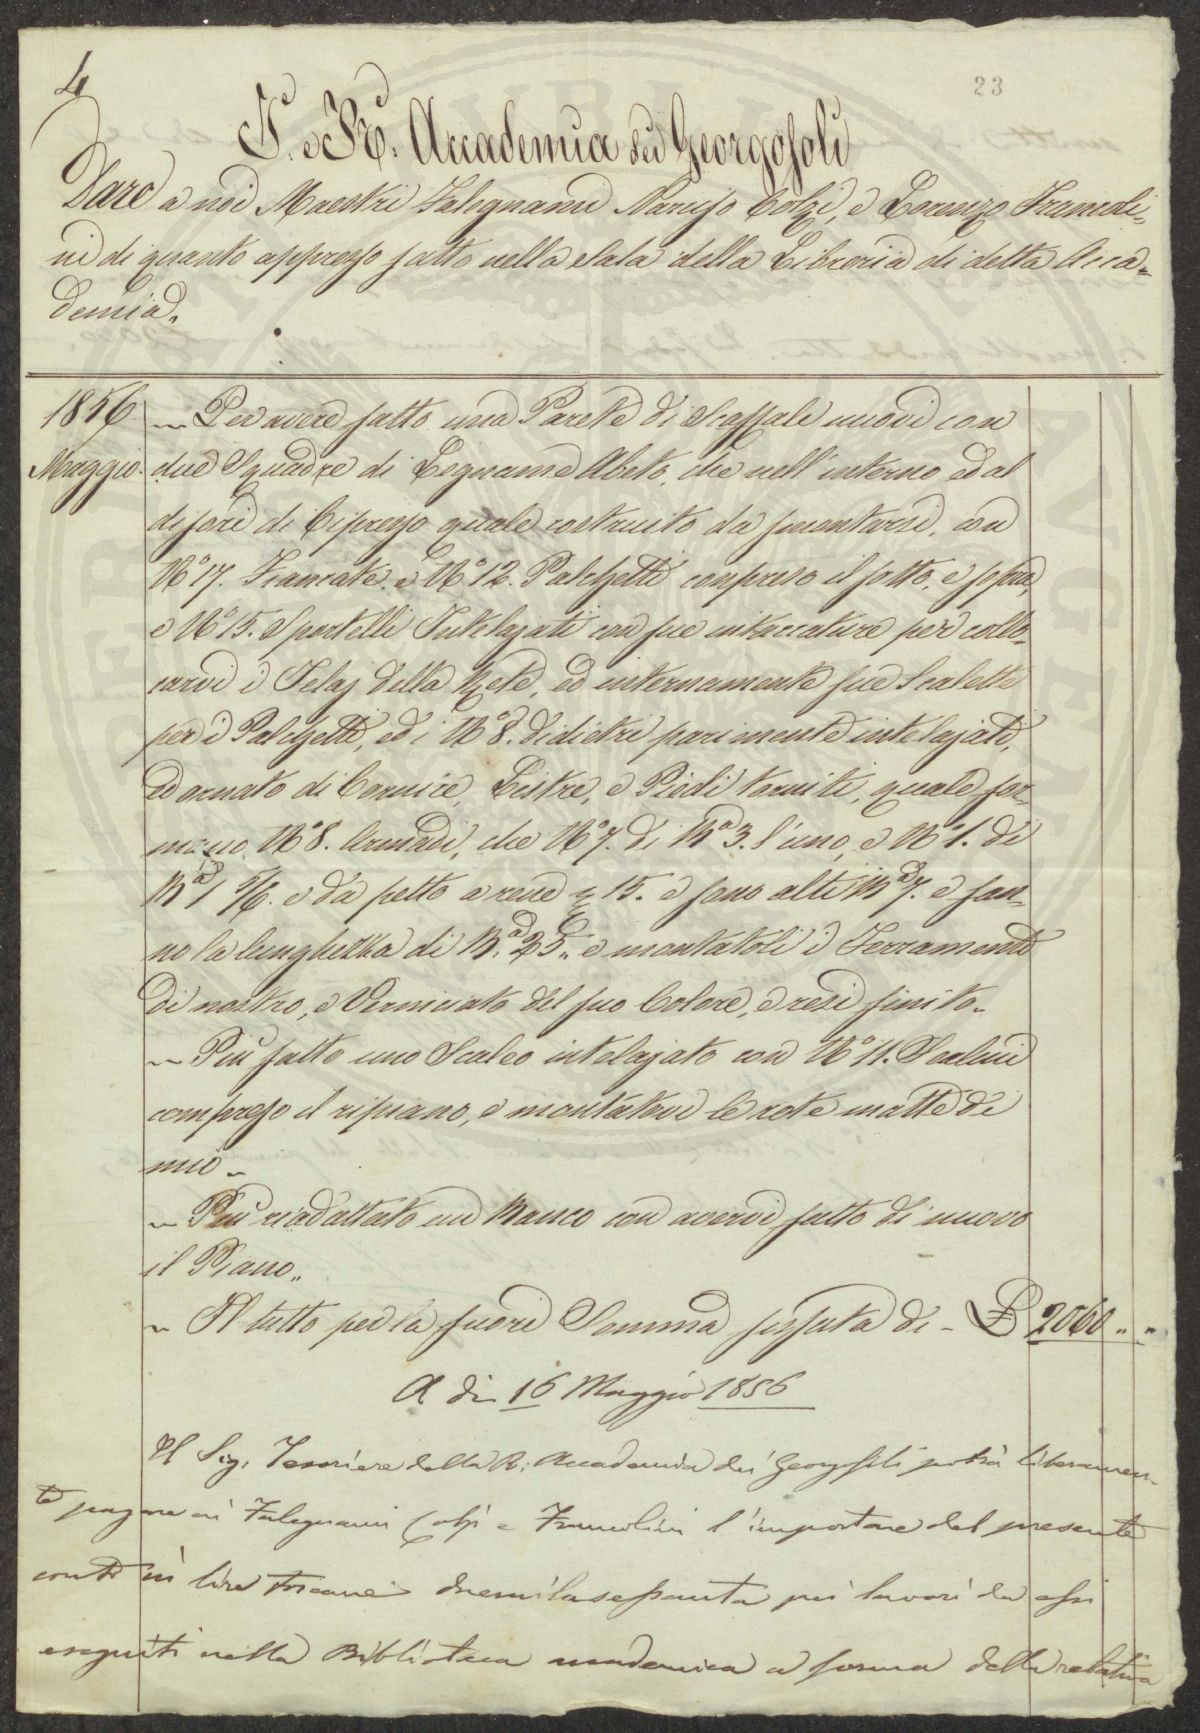 4
23
I. e R. Accademia dei Georgofoli
Dare a noi Maestri Falegnami Narciso Colzi, e Lorenzo Francoli=
ni di quanto appresso fatto nella Sala della Libreria di detta Acca=
demia.
1856 Per avere fatto una Parete di Scaffale nuovi con
Maggio. due Squadre di Legname Abeto, che nell'interno ed al
difori di Cipresso quale costruito da smontarsi, con
N.º 17. Tramate. e N.º 12. Palchetti compreso il sotto, e sopra,
e N.º 15. Sportelli Intelajati con sue intaccature per collo=
carvi i Telaj della Rete, ed internamente sue Scalette
per i Palchetti, ed i N.º 8. didietri parimente intelajati,
ed ornato di Cornice, Listre, e Piedi torniti, quale for=
mano N.º 8. Armadi, che N.º 7. di B.ª 3. l'uno, e N.º 1. di
B.ª 1 5/6. e da petto a rene 15. e sono alti B.ª 7. e fan=
no la lunghezza di B.ª 25. e montatoli i Ferramenti
di nostro, e Verniciato del suo Colore, e resi finito.
Più fatto uno Scaleo intelajato con N.º 11. Scalini
compreso il ripiano, e montatovi le rote matte di
mio.
Più riadattato un Banco con avervi fatto di nuovo
il Piano.
Il tutto per la fuori Somma fissata di - £ 2060 " "
A dì 16 Maggio 1856
Il Sig. Tesoriere della R. Accademia dei Georgofili potrà liberamen-
te pagare ai Falegnami Colzi e Francolini l'importare del presente
conto in lire toscane duemilasessanta per lavori da essi
eseguiti nella Biblioteca accademica a forma della relativa